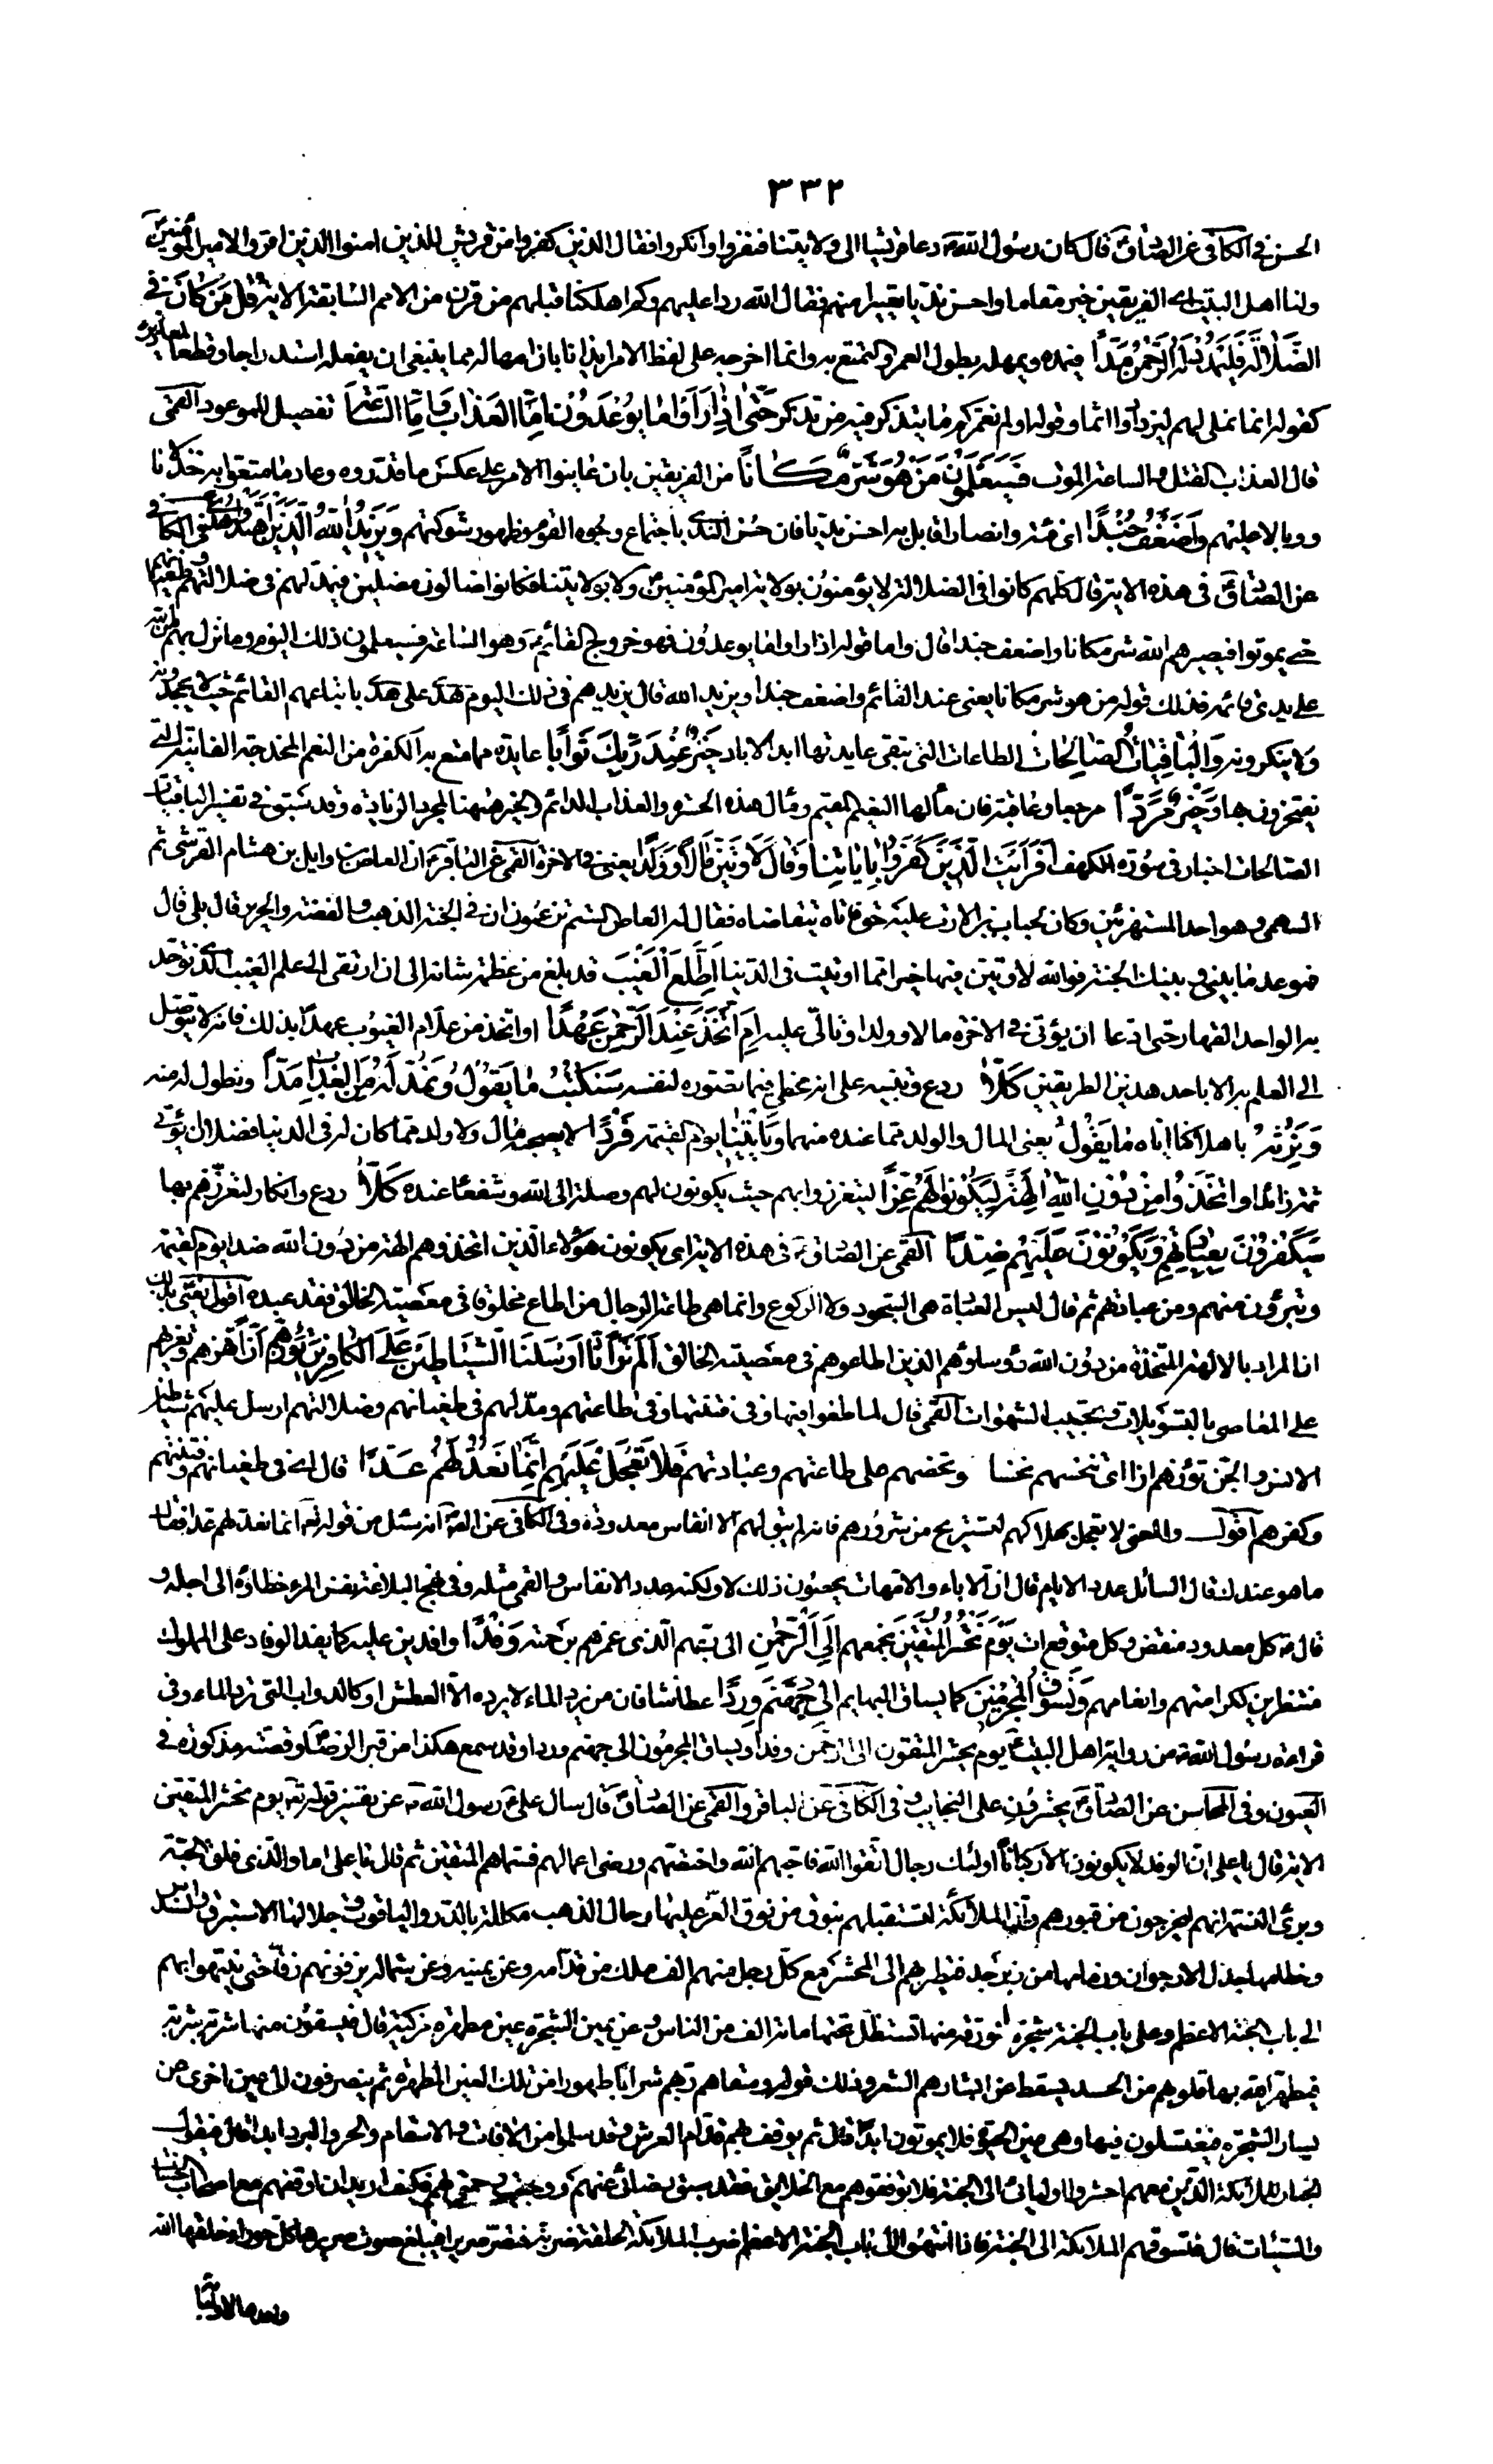 ٣٣٢
الحسن في الكافي عن الصادق ع قال كان رسول الله ص دعا قريشا الى ولايتنا فنفروا وانكروا فقال الذين كفروا من قريش للذين امنوا الذين اقروا لامير المؤمنين
ولنا اهل البيت اي الفريقين خير مقاما واحسن نديا تعييرا منهم فقال الله ردا عليهم وكم اهلكنا قبلهم من قرن من الامم السابقة الاية قل من كان في
الضلالة فليمدد له الرحمن مدا فيمده ويمهله بطول العمر والتمتع به وانما اخرجه على لفظ الامر ايذانا بان امهاله مما ينبغي ان يفعله استدراجا وقطعا لمعاذيره
كقوله انما نملي لهم ليزدادوا اثما وقوله اولم نعمركم ما يتذكر فيه من تذكر حتى اذا راوا ما يوعدون اما العذاب واما الساعة تفصيل للموعود القمي
قال العذاب القتل والساعة الموت فسيعلمون من هو شر مكانا من الفريقين بان عاينوا الامر على عكس ما قدروه وعاد ما متعوا به خذلانا
ووبالا عليهم واضعف جندا اي فئة وانصارا قابل به احسن نديا فان حسن الندي باجتماع وجوه القوم وظهور شوكتهم ويزيد الله الذين اهتدوا هدى في الكافي
عن الصادق ع في هذه الاية قال كلهم كانوا في الضلالة لا يؤمنون بولاية امير المؤمنين ع ولا بولايتنا فكانوا ضالون مضلين فيمد لهم في ضلالتهم وطغيانهم
حتى يموتوا فيصيرهم الله شر مكانا واضعف جندا قال واما قوله اذا راوا ما يوعدون فهو خروج القائم ع وهو الساعة فسيعلمون ذلك اليوم وما نزل بهم من الله
على يدي قائمه فذلك قوله من هو شر مكانا يعني عند القائم واضعف جندا ويزيد الله قال يزيدهم في ذلك اليوم هدى على هدى باتباعهم القائم حيث لا يجحدونه
ولا ينكرونه والباقيات الصالحات الطاعات التي تبقى عايدتها ابد الاباد خير عند ربك ثوابا عايدة مما متع به الكفرة من النعم المخدجة الفانية التي
يفتخرون بها وخير مردا مرجعا وعاقبة فان مالها النعيم المقيم ومال هذه الحسرة والعذاب الدائم والخير ههنا لمجرد الزيادة وقد سبق في تفسير الباقيات
الصالحات اخبار في سورة الكهف افرايت الذي كفر باياتنا وقال لاوتين مالا وولدا يعني في الاخرة القمي عن الباقر ع ان العاص بن وايل بن هشام القرشي ثم
السهمي وهو احد المستهزئين وكان لخباب بن الارت عليه حق فاتاه يتقاضاه فقال له العاص الستم تزعمون ان في الجنة الذهب والفضة والحرير قال بلى قال
فموعد ما بيني وبينك الجنة فوالله لاوتين فيها خيرا مما اوتيت في الدنيا اطلع الغيب قد بلغ من عظمة شانه الى ان ارتقى الى علم الغيب الذي توحد
به الواحد القهار حتى ادعا ان يؤتى في الاخرة مالا وولدا وتالى عليه ام اتخذ عند الرحمن عهدا او اتخذ من علام الغيوب عهدا بذلك فانه لا يتوصل
الى العلم به الا باحد هذين الطريقين كلا ردع وتنبيه على انه مخطئ فيما تصوره لنفسه سنكتب ما يقول ونمد له من العذاب مدا ونطول له منه
ونرثه باهلاكنا اياه ما يقول يعني المال والولد مما عنده منهما وياتينا يوم القيمة فردا لا يصحبه مال ولا ولد مما كان له في الدنيا فضلا ان يؤتى
ثمة زائدا واتخذوا من دون الله الهة ليكونوا لهم عزا ليتعززوا بهم حيث يكونون لهم وصلة الى الله وشفعاء عنده كلا ردع وانكار لتعززهم بها
سيكفرون بعبادتهم ويكونون عليهم ضدا القمي عن الصادق ع في هذه الاية اي يكونون هؤلاء الذين اتخذوهم الهة من دون الله ضدا يوم القيمة
ويتبرؤن منهم ومن عبادتهم ثم قال ليس العبادة هي السجود ولا الركوع وانما هي طاعة الرجال من اطاع مخلوقا في معصية الخالق فقد عبده اقول يعني بذلك
ان المراد بالالهة المتخذة من دون الله رؤساؤهم الذين اطاعوهم في معصية الخالق الم تر انا ارسلنا الشياطين على الكافرين تؤزهم ازا تهزهم وتغريهم
على المعاصي بالتسويلات وتحبيب الشهوات القمي قال لما طغوا فيها وفي فتنتها وفي طاعتهم ومد لهم في طغيانهم وضلالتهم ارسل عليهم شياطين
الانس والجن تؤزهم ازا اي تنخسهم نخسا وتحضهم على طاعتهم وعبادتهم فلا تعجل عليهم انما نعد لهم عدا قال اي في طغيانهم وفتنتهم
وكفرهم اقول والمعنى لا تعجل بهلاكهم لتستريح من شرورهم فانه لم يبق لهم الا انفاس معدودة وفي الكافي عن الصادق ع انه سئل من قوله تع انما نعد لهم عدا فقال
ما هو عندك قال السائل عدد الايام قال ان الاباء والامهات يحصون ذلك لا ولكنه عدد الانفاس والقمي مثله وفي نهج البلاغة نفس المرء خطاؤه الى اجله و
قال ع كل معدود منقض وكل متوقع ات يوم نحشر المتقين نجمعهم الى الرحمن الى ربهم الذي غمرهم برحمته وفدا وافدين عليه كما يفد الوفاد على الملوك
منتظرين لكرامتهم وانعامهم ونسوق المجرمين كما يساق البهايم الى جهنم وردا عطاشا فان من يرد الماء لا يرده الا لعطش او كالدواب التي ترد الماء وفي
قراءة رسول الله ص من رواية اهل البيت ع يوم يحشر المتقون الى الرحمن وفدا ويساق المجرمون الى جهنم وردا وقد سمع هكذا من قبر الرضا ع وقصته مذكورة في
العيون وفي المحاسن عن الصادق ع يحشرون على النجايب وفي الكافي عن الباقر والقمي عن الصادق ع قال سال علي ع رسول الله ص عن تفسير قوله تع يوم نحشر المتقين
الاية قال يا علي ان الوفد لا يكونون الا ركبانا اولئك رجال اتقوا الله فاحبهم الله واختصهم ورضي اعمالهم فسماهم المتقين ثم قال يا علي اما والذي فلق الحبة
وبرئ النسمة انهم ليخرجون من قبورهم وان الملائكة لتستقبلهم بنوق من نوق العز عليها رحال الذهب مكللة بالدر والياقوت وجلالها الاستبرق والسندس
وخطامها جدل الارجوان وزمامها من زبرجد فتطير بهم الى المحشر مع كل رجل منهم الف ملك من قدامه وعن يمينه وعن شماله يزفونهم زفا حتى ينتهوا بهم
الى باب الجنة الاعظم وعلى باب الجنة شجرة الورقة منها تستظل تحتها مائة الف من الناس وعن يمين الشجرة عين مطهرة مزكية قال فيسقون منها شربة شربة
فيطهر الله بها قلوبهم من الحسد ويسقط عن ابشارهم الشعر وذلك قوله وسقاهم ربهم شرابا طهورا من تلك العين المطهرة ثم ينصرفون الى عين اخرى عن
يسار الشجرة فيغتسلون فيها وهي عين الحيوة فلا يموتون ابدا قال ثم يوقف بهم قدام العرش وقد سلموا من الافات والاسقام والحر والبرد ابدا قال فيقول
الجبار للملائكة الذين معهم احشروا اوليائي الى الجنة فلا توقفوهم مع الخلايق فقد سبق رضائي عنهم ووجبت رحمتي لهم فكيف اريد ان اوقفهم مع اصحاب الحسنات
والسيئات قال فتسوقهم الملائكة الى الجنة فاذا انتهوا الى باب الجنة الاعظم ضرب الملائكة الحلقة ضربة فتصر صريرا فيبلغ صوت صريرها كل حوراء خلقها الله
واعدها لاوليائه